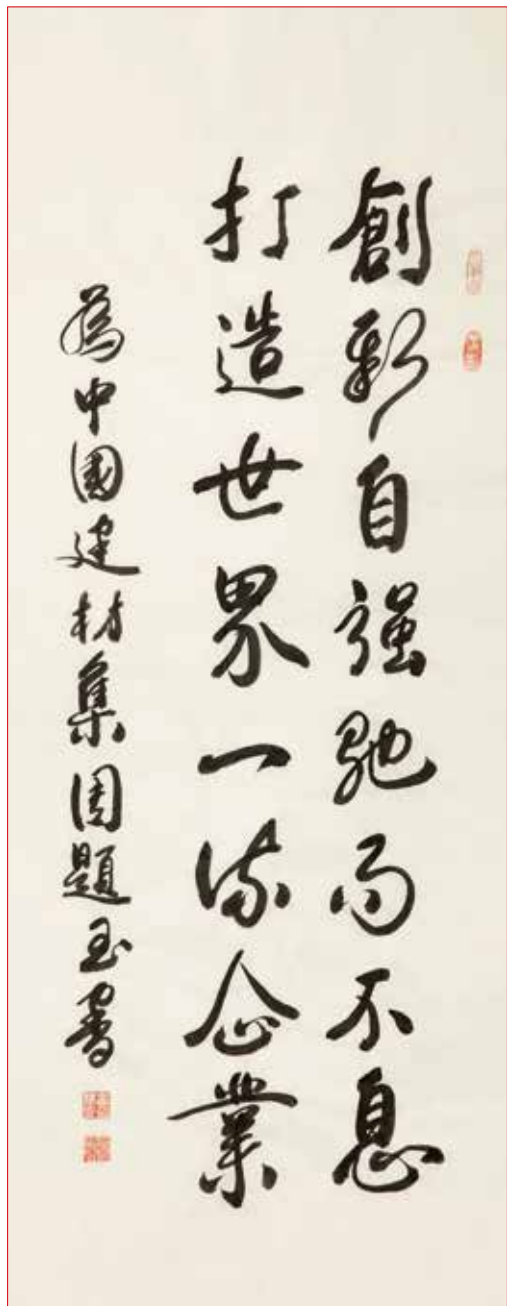 創新自强馳而不息
打造世界一流企業
為中國建材集團題玉書